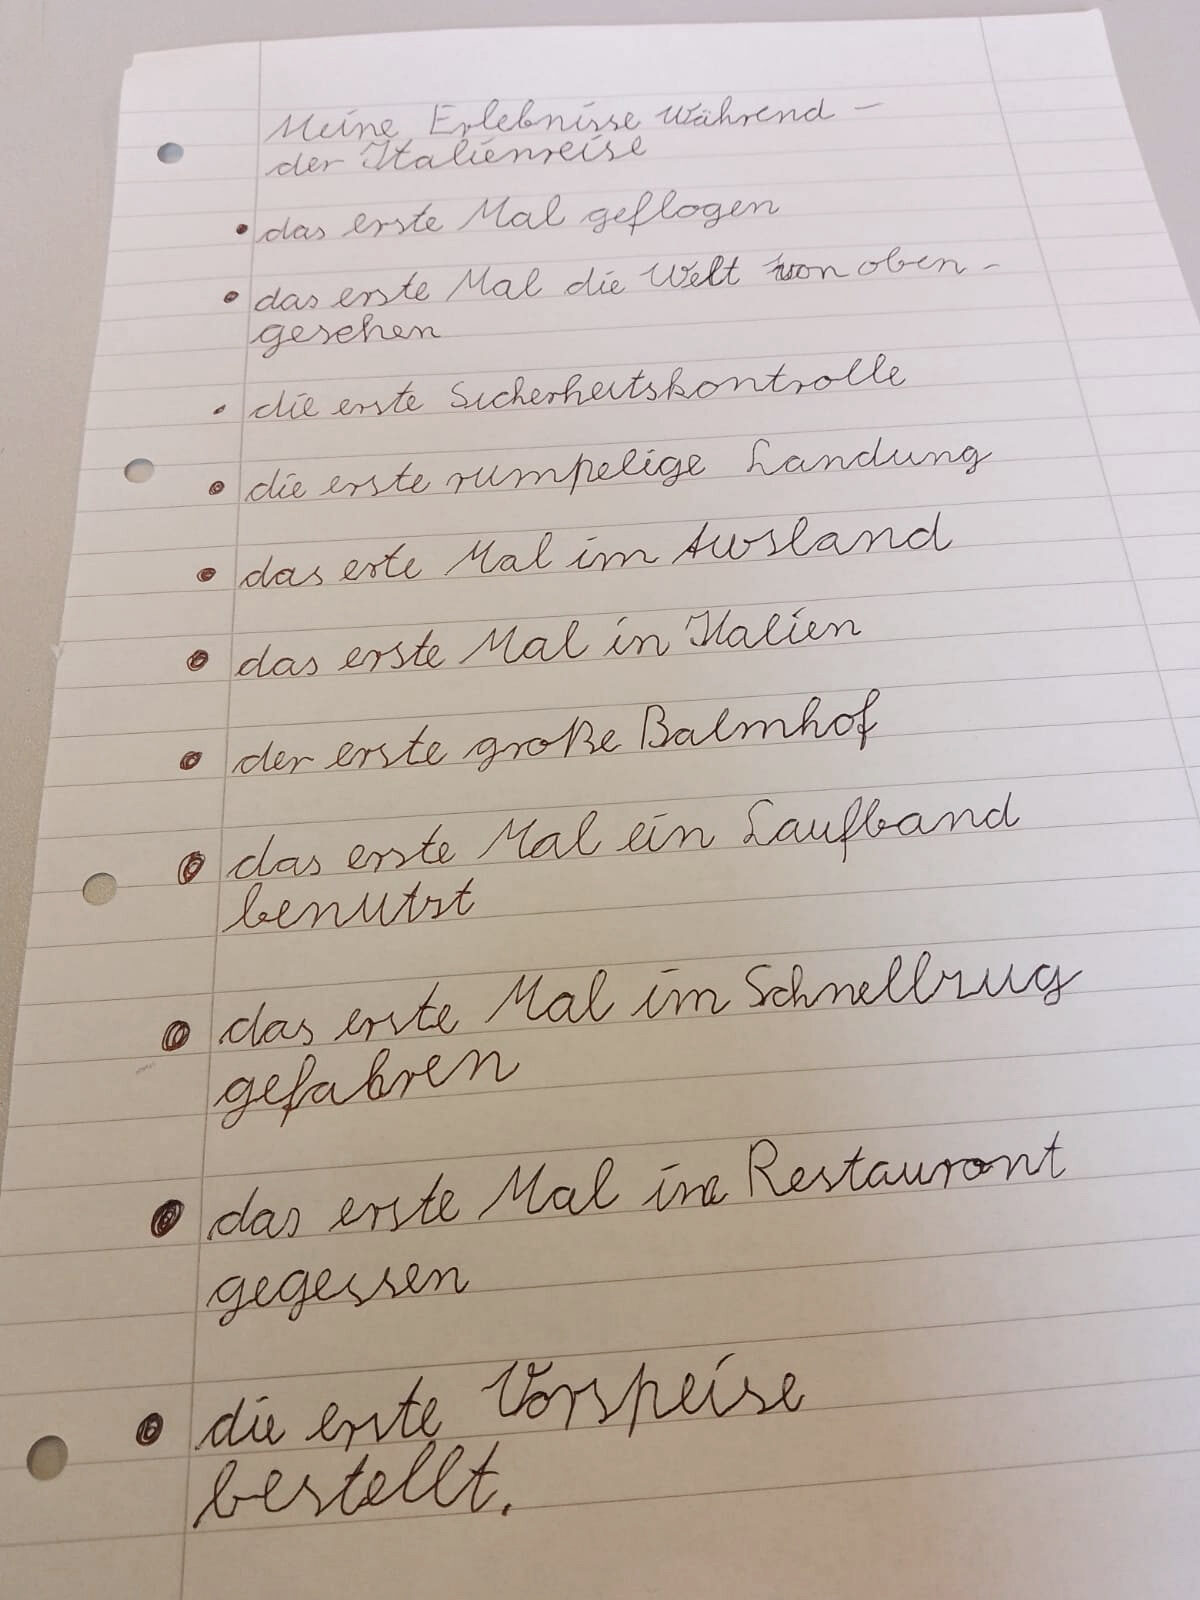 Meine Erlebnisse Während –
der Italienreise
• das erste Mal geflogen
• das erste Mal die Welt von oben –
gesehen
• die erste Sicherheitskontrolle
• die erste rumpelige Landung
• das erte Mal im Ausland
• das erste Mal in Italien
• der erste große Bahnhof
• das erste Mal ein Laufband
benutzt
• das erste Mal im Schnellzug
gefahren
• das erste Mal im Restaurant
gegessen
• die erste Vorspeise
bestellt.